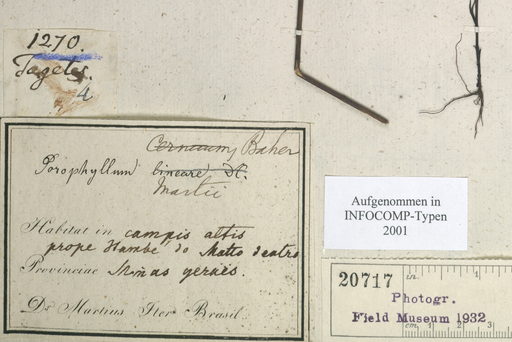 1270.
Tagetes.
4
Cernuum, Baker
Porophyllum lineare DC.
Martii
Habitat in campis altis
prope Hambe do Matto dentro
Provinciae Minas geraës.
Dr Martius Iter Brasil.
Aufgenommen in
INFOCOMP-Typen
2001
20717
in.
1
Photogr.
Field Museum 1932
cm
1
2
3